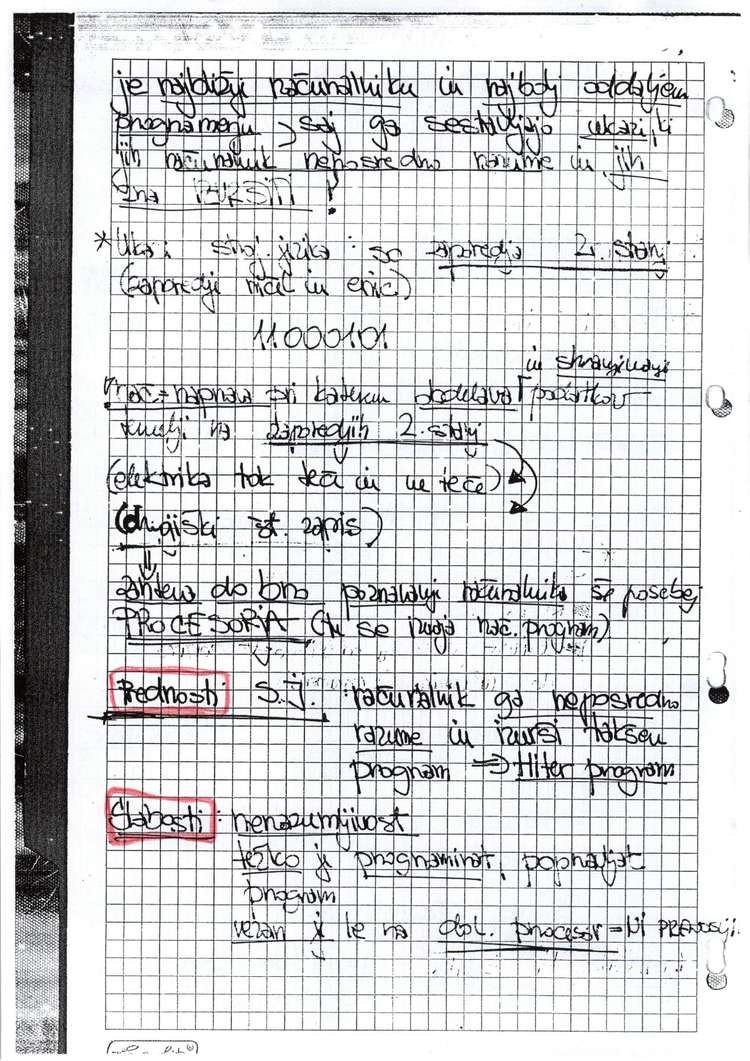 je najbližji računalniku in najbolj oddaljen
programerju, saj ga sestavljajo ukazi, ki
jih računalnik neposredno razume in jih
zna IZVRŠITI!
*Ukazi stroj. jezika: so zaporedja 2. stanj
(zaporedji ničel in enic)
11000101
in shranjevanje
rač = naprava pri katerem obdelava podatkov
temelji na zaporedjih 2. stanj
(elektrika tok teče in ne teče)
(dvojiški št. zapis)
zahteva dobro poznavanje računalnika še posebej
PROCESORJA (tu se izvaja rač. program)
Prednosti S.J. : računalnik ga neposredno
razume in izvrši takšen
program => Hiter program
Slabosti : nerazumljivost
težko je programirat, popravljat
program
vezan je le na dol. procesor = NI PRENOSLJI.